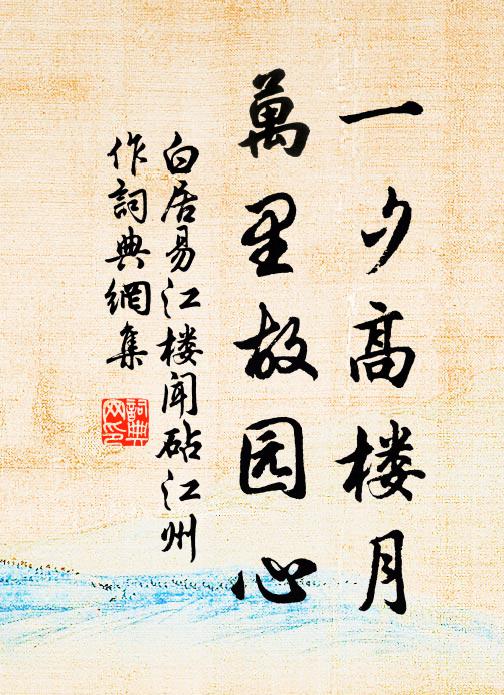 一夕高楼月
萬里故园心
白居易江楼闻砧江州
作詞典網集
詞典
网印